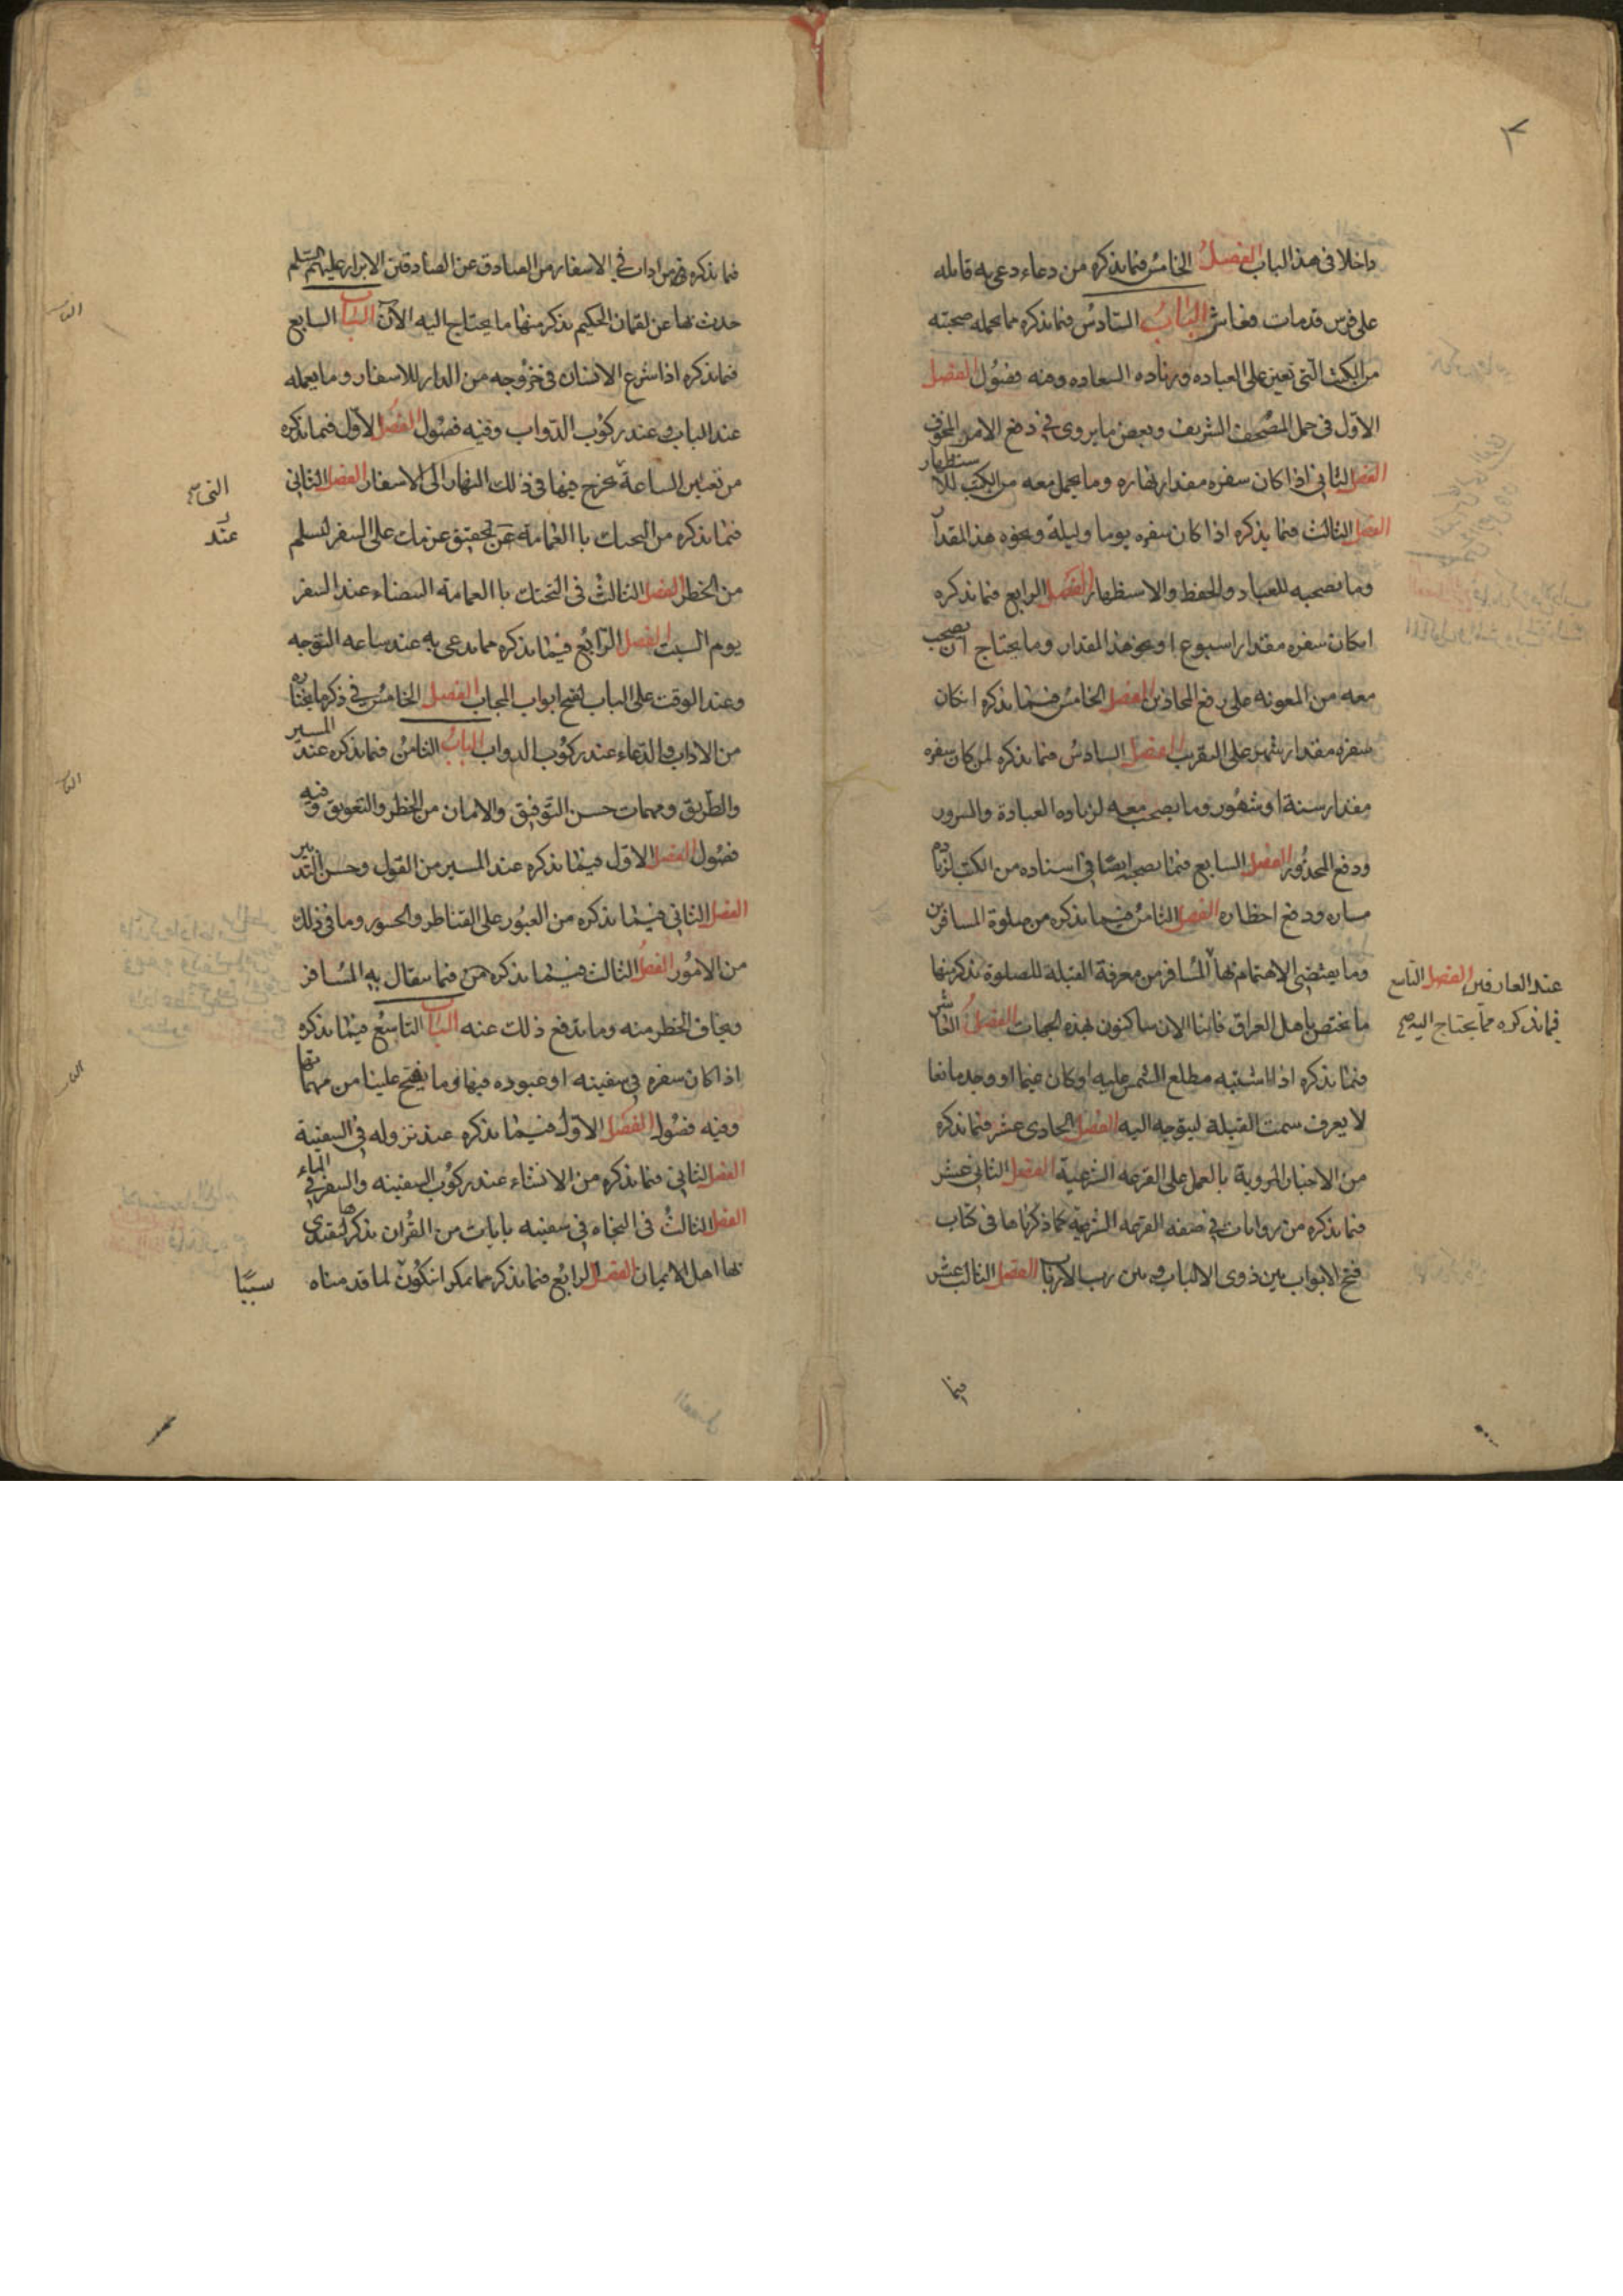 داخلا فى هذا الباب الفصل الخامس فيما نذكره من دعاء دعى به قايله
على فرس قدمات فعاش الباب السادس فيما نذكره مما يحمله صحبته
من الكتب التى تعين على العباده وزياده السعاده وفيه فصول الفصل
الاول فى حمل المصحف الشريف وبعض ما يروى فى دفع الامر المخوف
الفصل الثانى اذا كان سفره مقدار نهاره وما يحمل معه من الكتب للاستظهار
الفصل الثالث فيما نذكره اذا كان سفره يوما وليلة ونحو هذا المقدار
وما يصحبه للعباد والحفظ والاستظهار الفصل الرابع فيما نذكره
اكان سفره مقدار اسبوع او نحو هذا المقدار وما يحتاج ان يصحب
معه من المعونه على دفع المحاذير الفصل الخامس فيما نذكره انكان
سفره مقدار شهر على التقريب الفصل السادس فيما نذكره لمن كان سفره
مقدار سنة او شهور وما يصحب معه لزياده العبادة والسرور
ودفع المحذور الفصل السابع فيما يصحبه ايضا فى اسفاره من الكتب لزيادة
مساره ودفع اخطاره الفصل الثامن فيما نذكره من صلوة المسافرين
وما يقتضى الاهتمام بها عند العارفين الفصل التاسع
فيما نذكره مما يحتاج اليه صح
المسافر من معرفة القبلة للصلوة نذكر منها
ما يختص باهل العراق فاننا الان ساكنون بهذه الجهات الفصل العاشر
فيما نذكره اذا اشتبه مطلع الشمس عليه او كان غيما او وجد مانعا
لا يعرف سمت القبلة ليتوجه اليه الفصل الحادى عشر فيما نذكره
من الاخبار المروية بالعمل على القرعه الشرعية الفصل الثانى عشر
فيما نذكره من روايات فى صفه القرعه الشرعية كما ذكرناها فى كتاب
فتح الابواب بين ذوى الالباب وبين رب الارباب الفصل الثالث عشر
فيما
فيما نذكره من ادات فى الاسفار من الصادق عن الصادقين الابرار عليهم السلم
حدث بها عن لقمان الحكيم نذكر منها ما يحتاج اليه الآن الباب السابع
فيما نذكره اذا شرع الانسان فى خروجه من الدار للاسفار وما يعمله
عند الباب وعند ركوب الدواب وفيه فصول الفصل الاول فيما نذكره
من تعيين الساعة يخرج فيها فى ذلك النهار الى الاسفار الفصل الثانى
التى صح
فيما نذكره من التحنك باالعمامة عن تحقيق عزمك على السفر لتسلم
عند
من الخطر الفصل الثالث فى التحنك باالعمامة البيضاء عند السفر
يوم السبت الفصل الرابع فيما نذكره مما يدعى به عند ساعه التوجه
وعند الوقت على الباب لفتح ابواب المحاب الفصل الخامس فى ذكر ما يختاره
من الاداب والدعاء عند ركوب الدواب الباب الثامن فيما نذكره عند المسير
والطريق ومهمات حسن التوفيق والامان من الخطر والتعويق وفيه
فصول الفصل الاول فيما نذكره عند المسير من القول وحسن التدبير
الفصل الثانى فيما نذكره من العبور على القناطر والجسور وما فى ذلك
من الامور الفصل الثالث فيما نذكره فيما يتفال به المسافر
ويخاف الخطر منه وما يدفع ذلك عنه الباب التاسع فيما نذكره
اذا كان سفره فى سفينه او عبوره فيها وما يفتح علينا من مهماتها
وفيه فصول الفصل الاول فيما نذكره عند نزوله فى السفينة
الفصل الثانى فيما نذكره من الانشاء عند ركوب السفينه والسفر فى الماء
الفصل الثالث فى النجاه فى سفينه بايات من القران نذكرها ليقتدى
بها اهل الايمان الفصل الرابع فيما نذكر مما يمكر انكون لما قدمناه
سببا